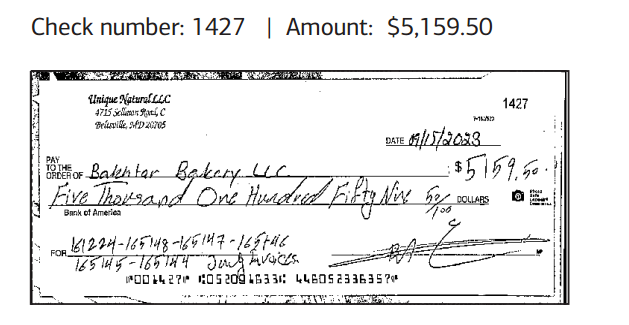 Check number: 1427 | Amount: $5,159.50
Unique Natural LLC
4715 Sellman Road, C
Beltsville, MD 20705
1427
DATE 09/15/2023
PAY TO THE ORDER OF Bakhtar Bakery LLC
$5159.50
Five Thousand One Hundred Fifty Nine 50/100 DOLLARS
Bank of America
FOR 161224-165148-165147-165146
165145-165144 Invoices